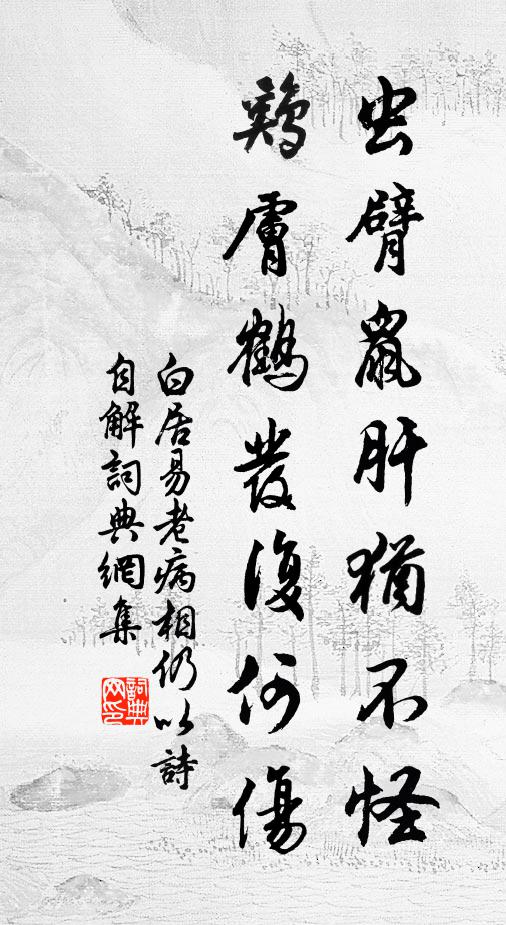 虫臂鼠肝猶不怪
鷄膚鶴發復何傷
白居易老病相仍以詩
自解詞典網集
詞典网印